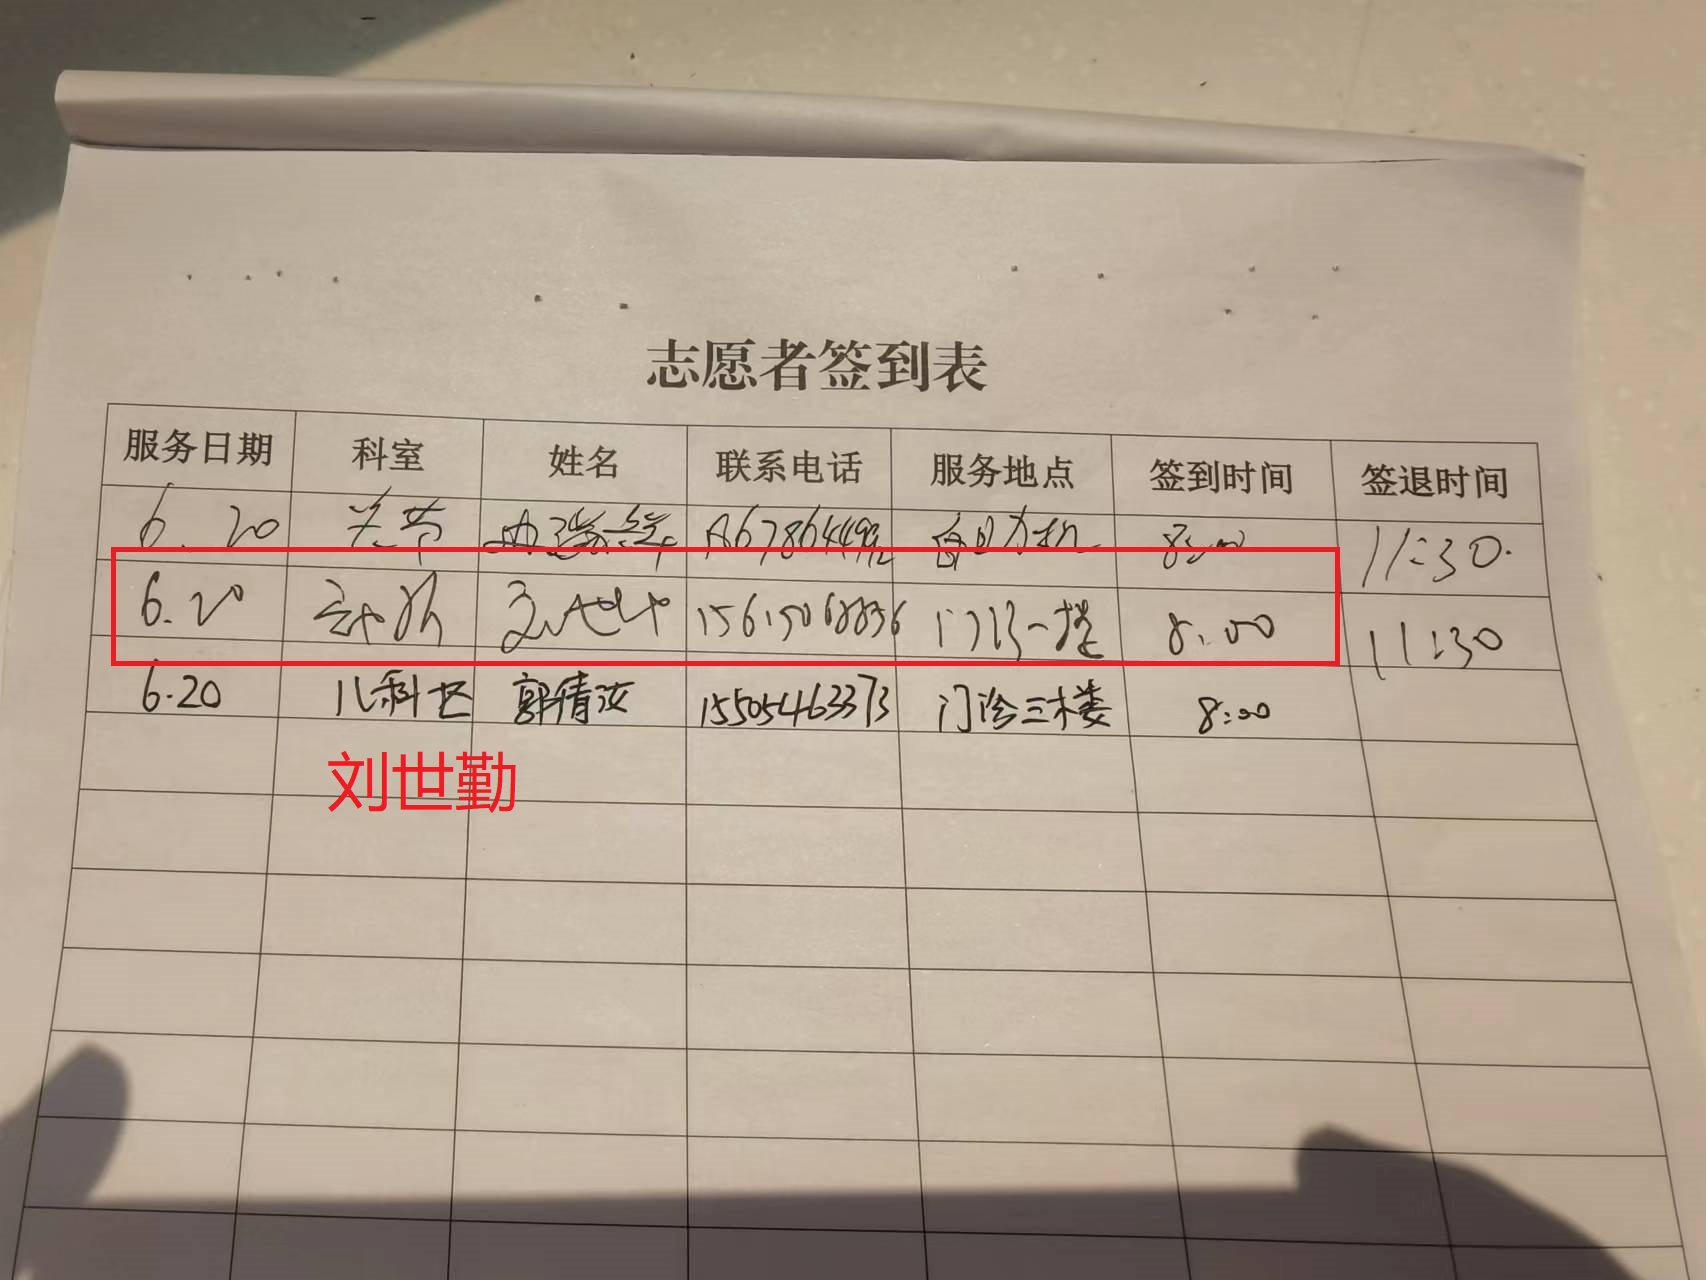 志愿者签到表
服务日期 科室 姓名 联系电话 服务地点 签到时间 签退时间
6.20 关节 自助机 8:00 11:30.
6.20 门诊一楼 8:00 11:30
6.20 儿科 郭倩汝 15505463373 门诊三楼 8:00
刘世勤